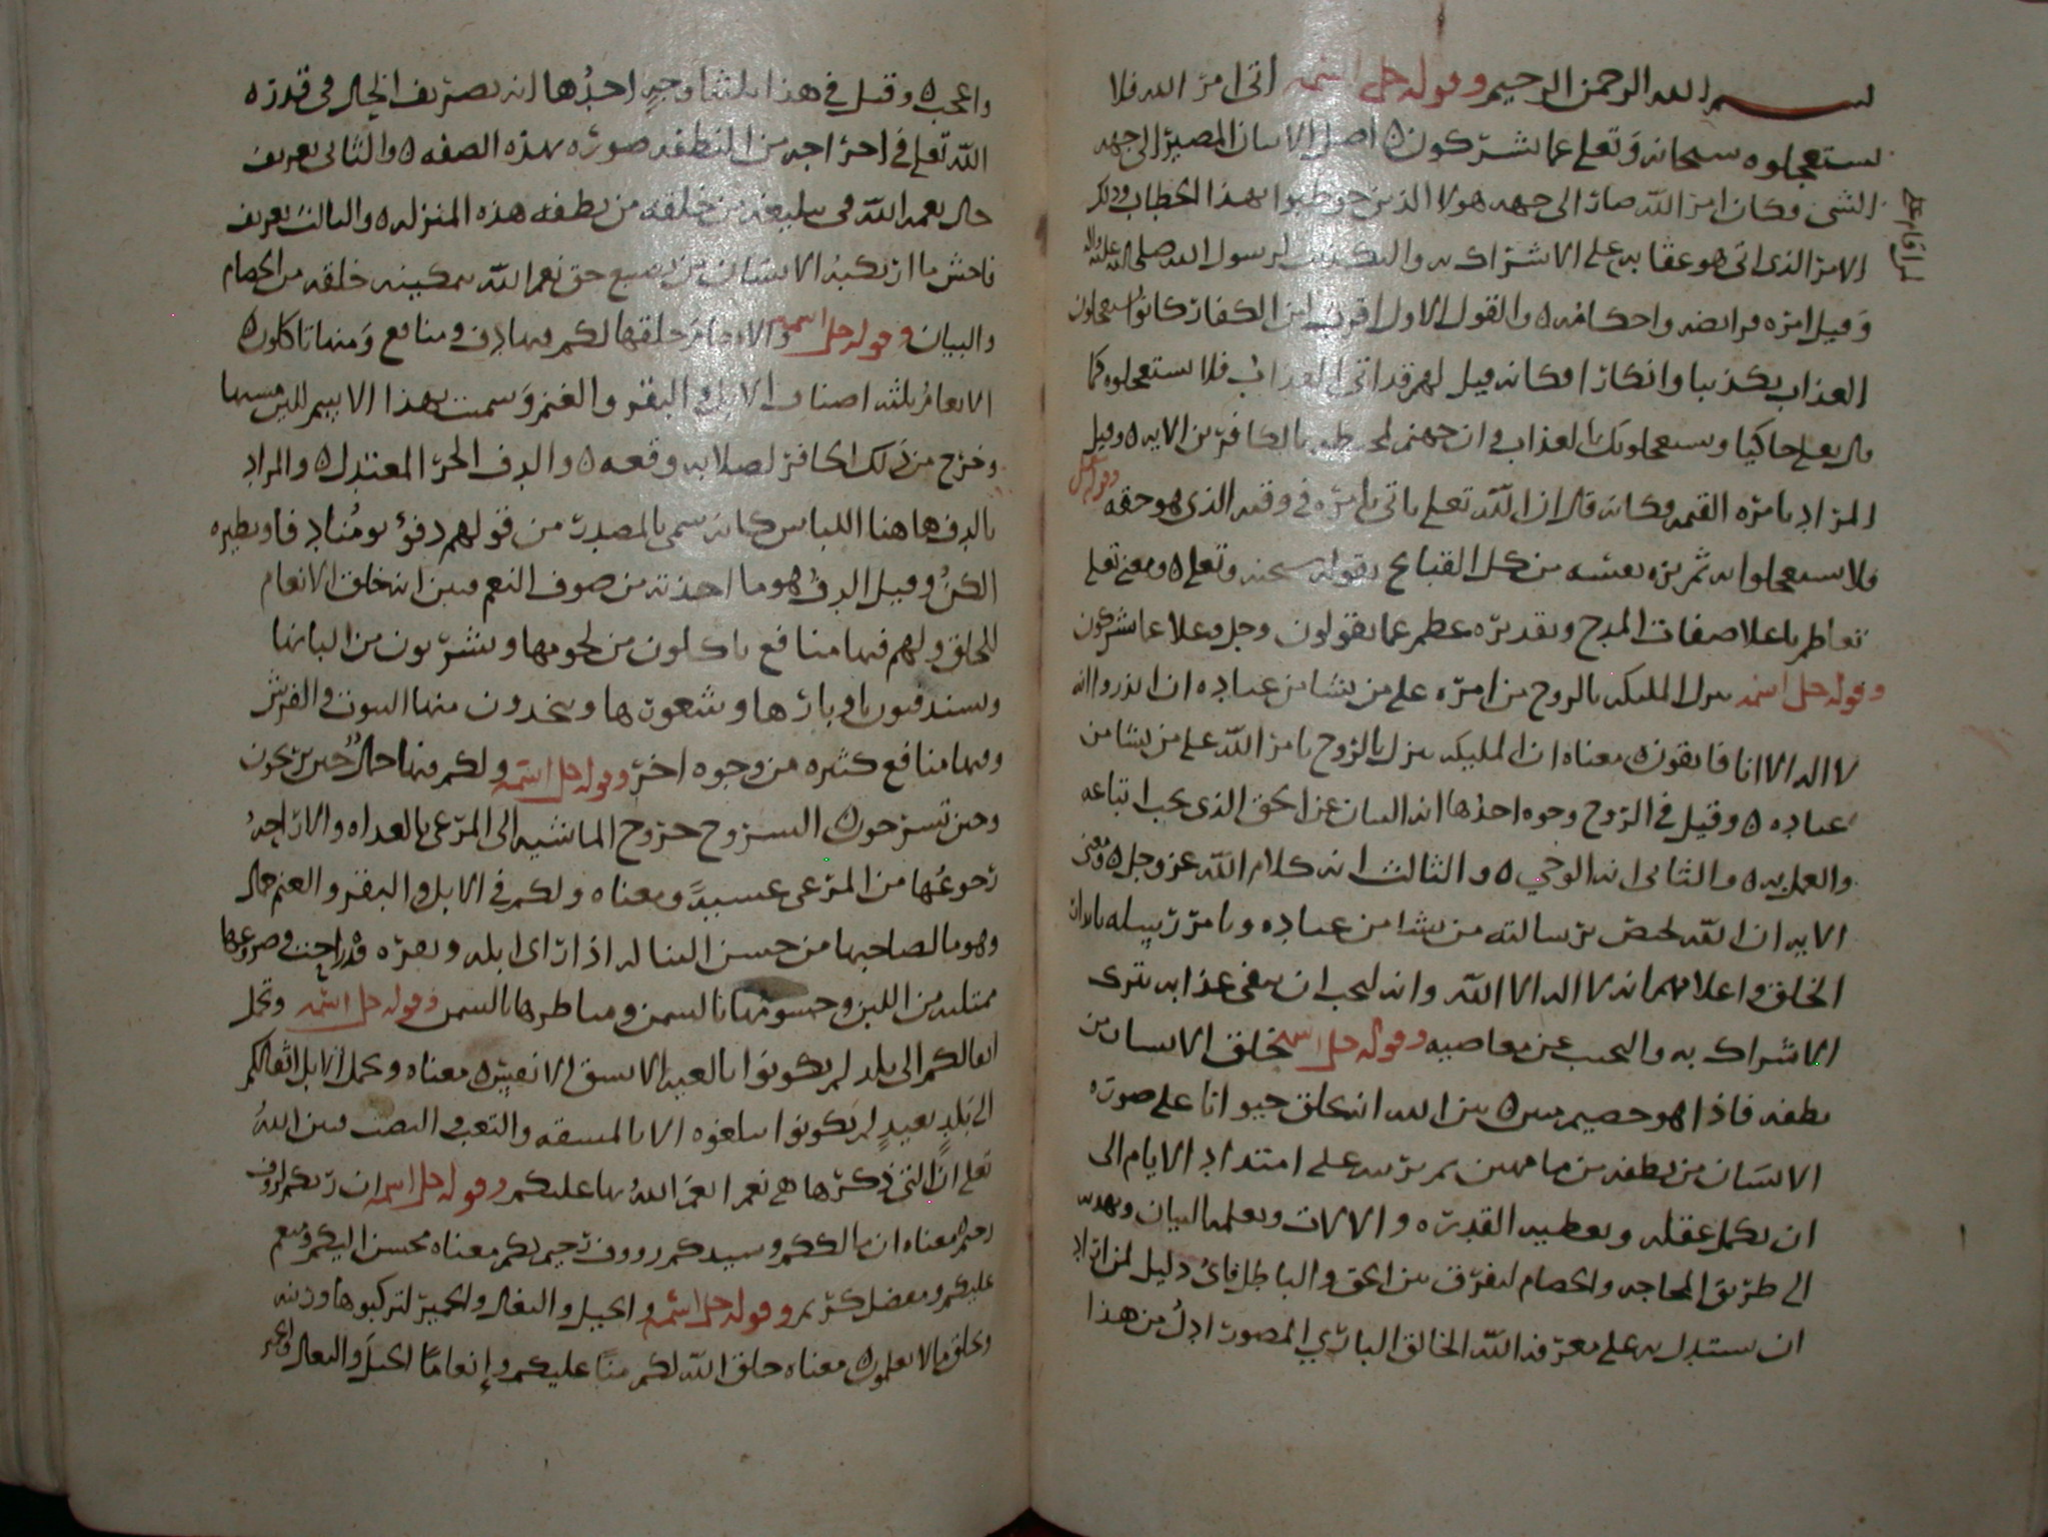 بسم الله الرحمن الرحيم وقوله جل اسمه اتى امر الله فلا
تستعجلوه سبحانه وتعلى عما يشركون ه اصل الاتيان المصير الى جهه
الشي وكان امر الله صار الى جهه هولا الذين خوطبوا بهذا الخطاب وذلك
الامر الذي اتى هو عقابه على الاشراك به والتكذيب لرسول الله صلى الله عليه واله
وقيل امره فرايضه واحكامه ه والقول الاول اقرب لان الكفار كانوا يستعجلون
العذاب تكذيبا وانكارا فكانه قيل لهم قد اتى العذاب فلا تستعجلوه كما
قال تعلى حاكيا ويستعجلونك بالعذاب وان جهنم لمحيطه بالكافرين الايه ه وقيل
المراد بامره القيمه وكانه قال ان الله تعلى ياتي بامره في وقته الذي هو حقه
فلا تستعجلوا به ثم نزه نفسه من كل القبايح بقوله سبحنه وتعلى ه ومعنى تعلى
تعاظم باعلا صفات المدح وتقديره عظم عما يقولون وجل وعلا عما يشركون
وقوله جل اسمه ينزل المليكه بالروح من امره على من يشا من عباده ان انذروا انه
لا اله الا انا فاتقون ه معناه ان المليكه تنزل بالروح بامر الله على من يشا من
عباده ه وقيل في الروح وجوه احدها انه البيان عن الحق الذي يجب اتباعه
والعمل به ه والثاني انه الوحي ه والثالث انه كلام الله عز وجل ه ومعنى
الايه ان الله يختص برسالته من يشا من عباده ويامر رسله بانذار
الخلق واعلامهم انه لا اله الا الله وانه يجب ان يتقى عذابه بترك
الاشراك به والتجنب عن معاصيه وقوله جل اسمه خلق الانسان من
نطفه فاذا هو خصيم مبين ه بين الله انه خلق حيوانا على صوره
الانسان من نطفه من ما مهين ثم تربيه على امتداد الايام الى
ان يكمل عقله ويعطيه القدره والالات ويعلمه البيان ويهديه
الى طريق المحاجه والخصام ليفرق بين الحق والباطل فاي دليل لمن اراد
ان يستدل به على معرفه الله الخالق الباري المصور ادل من هذا
واعجب ه وقيل في هذا ثلثه اوجه احدها انه تصريف الحال في قدره
الله تعلى في اخراجه من النطفه صوره بهذه الصفه ه والثاني تعريف
حال نعمه الله في تبليغه من خلقه من نطفه هذه المنزله ه والثالث تعريف
فاحش ما ارتكبه الانسان من تضييع حق نعم الله بتمكينه خلقه من الخصام
والبيان وقوله جل اسمه والانعام خلقها لكم فيها دف ومنافع ومنها تاكلون ه
الانعام ثلثه اصناف الابل والبقر والغنم وسميت بهذا الاسم للين مسها
وخرج من ذلك الحافر لصلابه وقعه ه والدف الحر المعتدل ه والمراد
بالدف هاهنا اللباس كانه سمي بالمصدر من قولهم دفؤ يومنا دفا ونظيره
الكن وقيل الدف هو ما اخذته من صوف النعم فبين انه خلق الانعام
للخلق ولهم فيها منافع ياكلون من لحومها ويشربون من البانها
ويستدفيون باوبارها وشعورها ويتخذون منها البيوت والفرش
وفيها منافع كثيره من وجوه اخر وقوله جل اسمه ولكم فيها جمال حين تريحون
وحين تسرحون السروح خروح الماشيه الى المرعى بالغداه والاراحه
رجوعها من المرعى عشيه ومعناه ولكم في الابل والبقر والغنم جمال
وهو ما لصاحبها من حسن الثنا له اذا راى ابله وبقره قد راحت وضروعها
ممتليه من اللبن وجسومها بالسمن ومناظرها بالسمن وقوله جل اسمه وتحمل
اثقالكم الى بلد لم تكونوا بالغيه الا بشق الانفس ه معناه وتحمل الابل اثقالكم
الى بلد بعيد لم تكونوا تبلغوه الا بالمشقه والتعب والنصب فبين الله
تعلى ان التي ذكرها هي نعم انعم الله بها عليكم وقوله جل اسمه ان ربكم لروف
رحيم معناه ان مالككم وسيدكم رووف رحيم بكم معناه محسن اليكم ومنعم
عليكم ومفضل كريم وقوله جل اسمه والخيل والبغال والحمير لتركبوها وزينه
ويخلق ما لا تعلمون معناه خلق الله لكم منا عليكم وانعاما الخيل والبغال والحمير